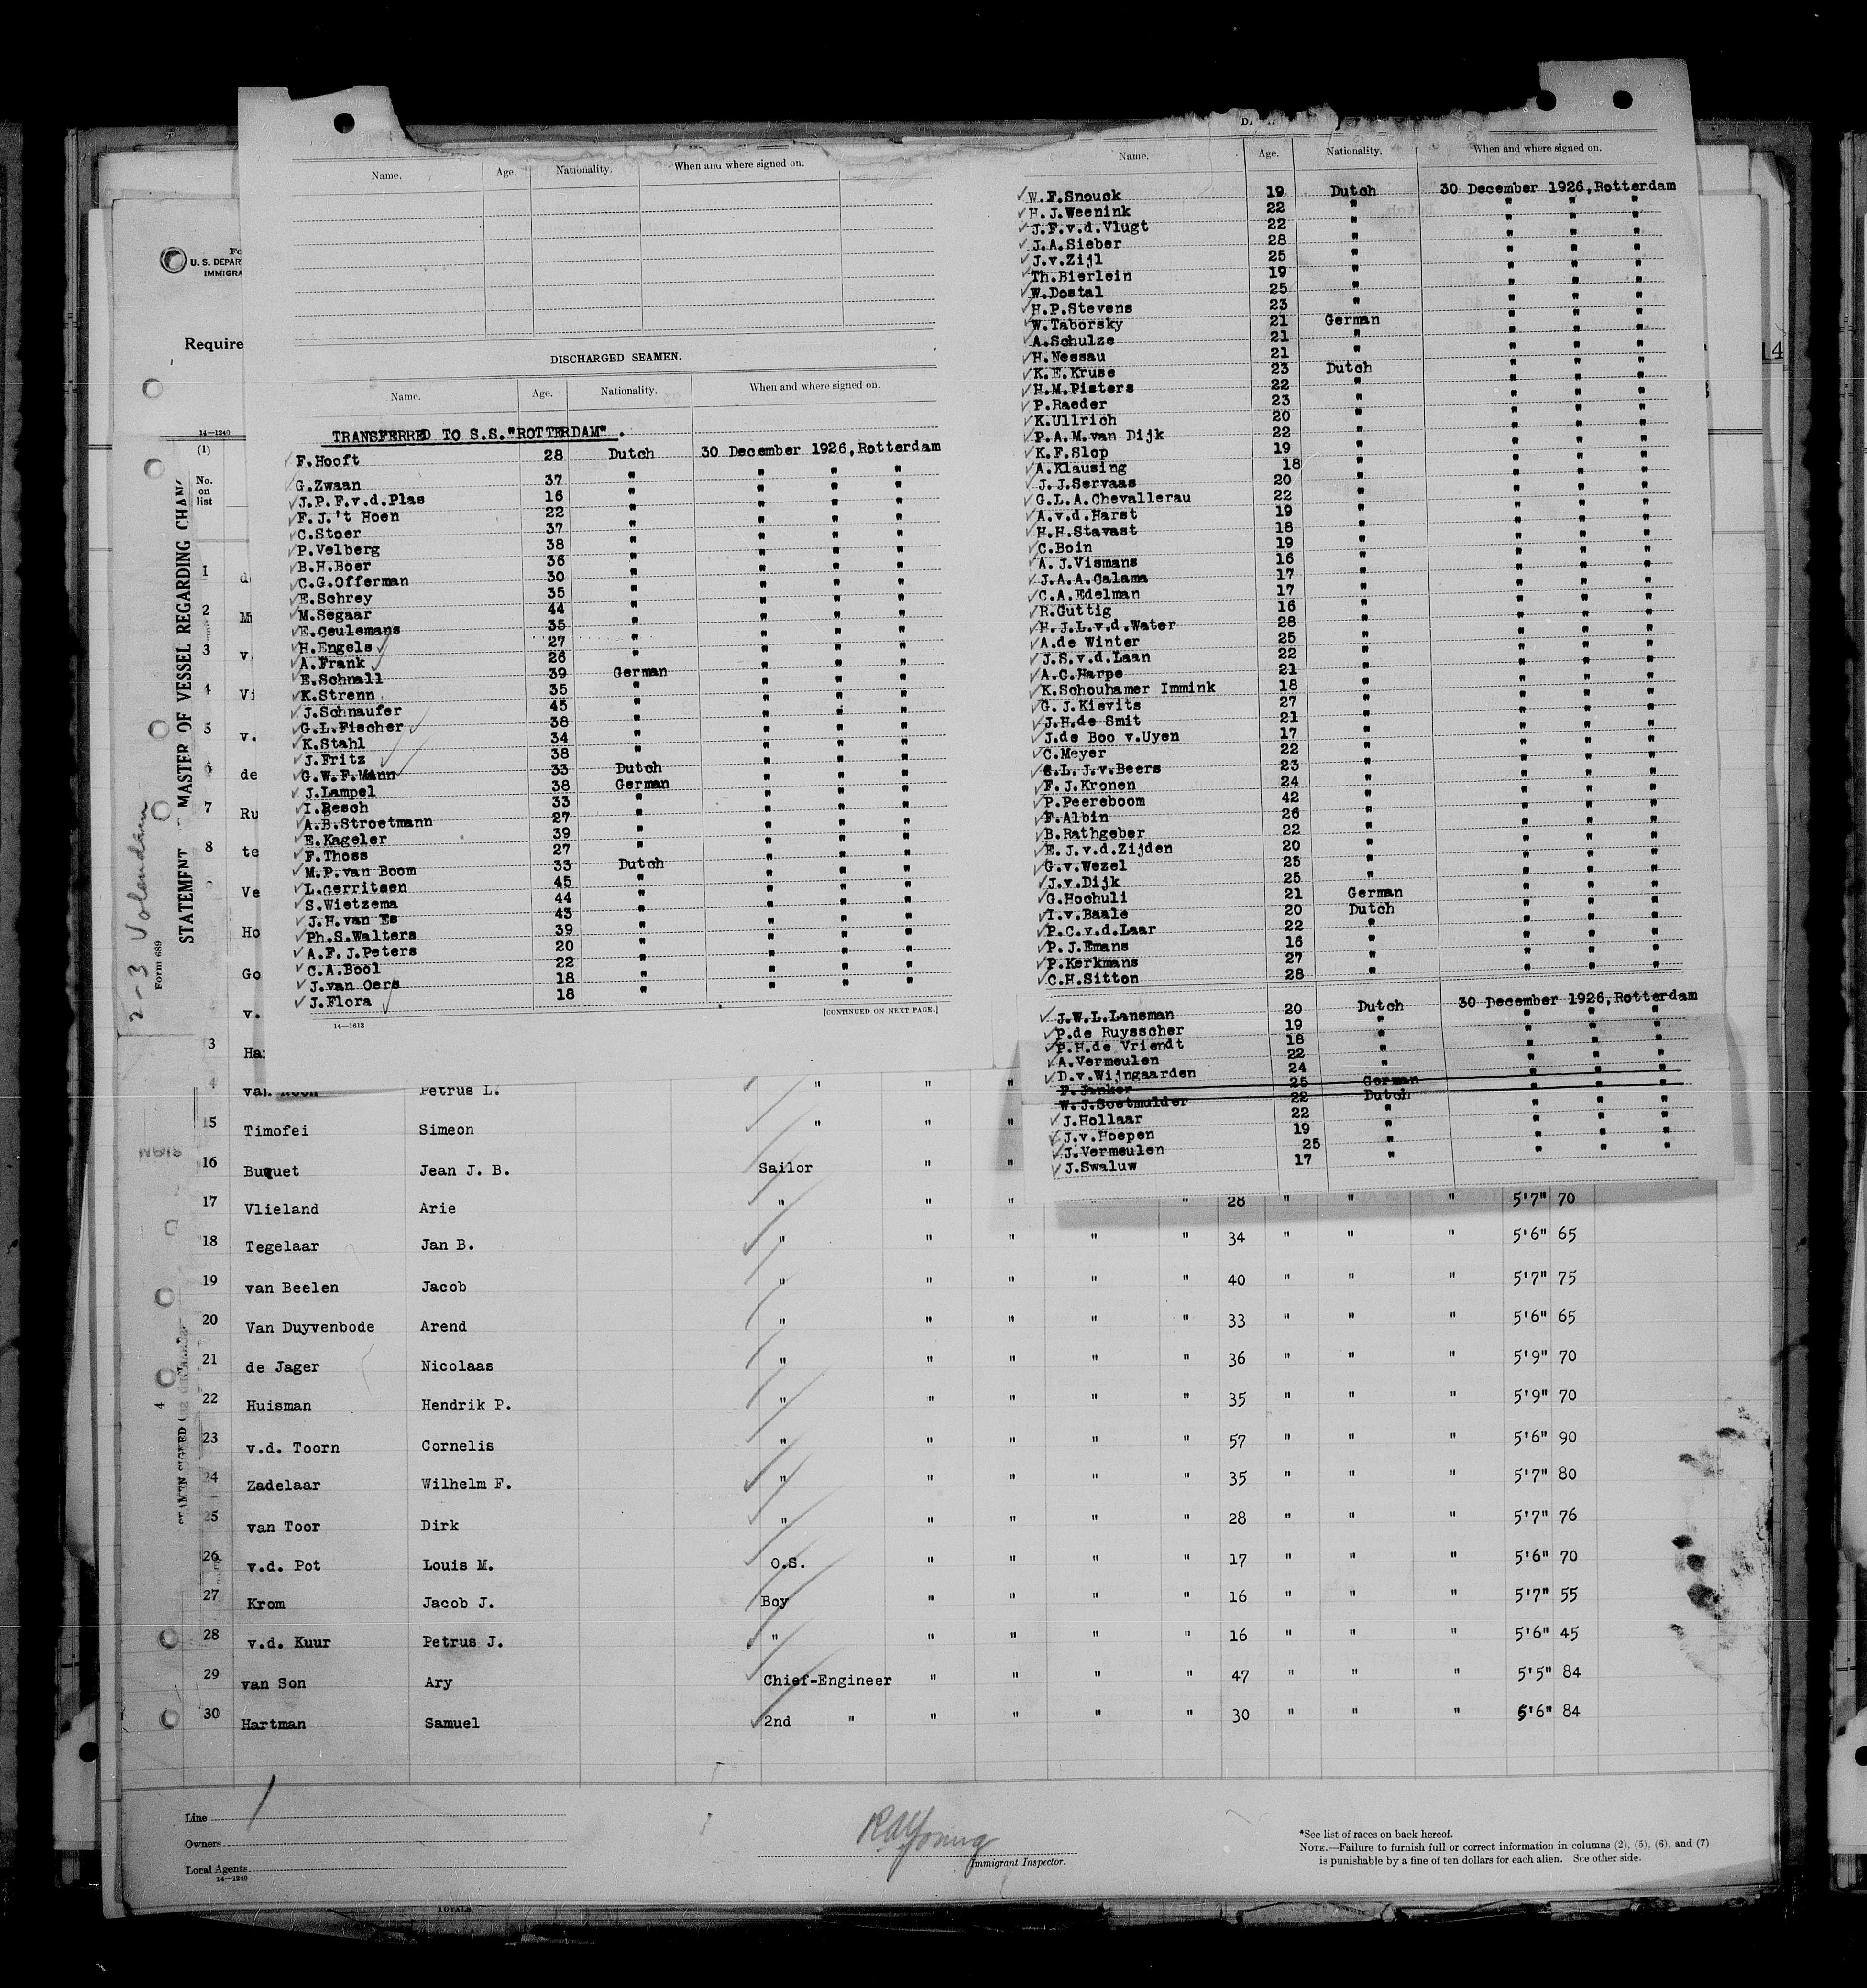 Name. Age. Nationality. When and where signed on.
DISCHARGED SEAMEN.
Name. Age. Nationality. When and where signed on.
TRANSFERRED TO S.S."ROTTERDAM".
F.Hooft 28 Dutch 30 December 1926,Rotterdam
G.Zwaan 37 " " " "
J.P.F.v.d.Plas 16 " " " "
F.J.'t Hoen 22 " " " "
C.Stoer 37 " " " "
P.Velberg 38 " " " "
B.H.Boer 36 " " " "
C.G.Offerman 30 " " " "
E.Schrey 35 " " " "
M.Segaar 44 " " " "
E.Ceulemans 35 " " " "
H.Engels 27 " " " "
A.Frank 26 " " " "
E.Schnall 39 German " " "
K.Strenn 35 " " " "
J.Schnaufer 45 " " " "
G.L.Fischer 38 " " " "
K.Stahl 34 " " " "
J.Fritz 38 " " " "
G.W.F.Mann 33 Dutch " " "
J.Lampel 38 German " " "
I.Resch 33 " " " "
A.B.Stroetmann 27 " " " "
E.Kageler 39 " " " "
F.Thoss 27 " " " "
M.P.van Boom 33 Dutch " " "
L.Gerritsen 45 " " " "
S.Wietzema 44 " " " "
J.H.van Es 43 " " " "
Ph.S.Walters 39 " " " "
A.F.J.Peters 20 " " " "
C.A.Bool 22 " " " "
J.van Oers 18 " " " "
J.Flora 18 " " " "
14—1613 [CONTINUED ON NEXT PAGE.]
Name. Age. Nationality. When and where signed on.
W.F.Snouck 19 Dutch 30 December 1926,Rotterdam
H.J.Weenink 22 " " " "
J.F.v.d.Vlugt 22 " " " "
J.A.Sieber 28 " " " "
J.v.Zijl 25 " " " "
Th.Bierlein 19 " " " "
W.Dostal 25 " " " "
H.P.Stevens 23 " " " "
W.Taborsky 21 German " " "
A.Schulze 21 " " " "
H.Nessau 21 " " " "
K.E.Kruse 23 Dutch " " "
H.M.Pisters 22 " " " "
P.Raeder 23 " " " "
K.Ullrich 20 " " " "
P.A.M.van Dijk 22 " " " "
K.F.Slop 19 " " " "
A.Klausing 18 " " " "
J.J.Servaas 20 " " " "
G.L.A.Chevallerau 22 " " " "
A.v.d.Harst 19 " " " "
H.H.Stavast 18 " " " "
C.Boin 19 " " " "
A.J.Vismans 16 " " " "
J.A.A.Calama 17 " " " "
C.A.Edelman 17 " " " "
R.Guttig 16 " " " "
H.J.L.v.d.Water 28 " " " "
A.de Winter 25 " " " "
J.S.v.d.Laan 22 " " " "
A.C.Harpe 21 " " " "
K.Schouhamer Immink 18 " " " "
G.J.Kievits 27 " " " "
J.H.de Smit 21 " " " "
J.de Boo v.Uyen 17 " " " "
C.Meyer 22 " " " "
S.L.J.v.Beers 23 " " " "
F.J.Kronen 24 " " " "
P.Peereboom 42 " " " "
F.Albin 26 " " " "
B.Rathgeber 22 " " " "
E.J.v.d.Zijden 20 " " " "
G.v.Wezel 25 " " " "
J.v.Dijk 25 " " " "
G.Hochuli 21 German " " "
I.v.Baale 20 Dutch " " "
P.C.v.d.Laar 22 " " " "
P.J.Emans 16 " " " "
P.Kerkmans 27 " " " "
C.H.Sitton 28 " " " "
J.W.L.Lansman 20 Dutch 30 December 1926,Rotterdam
P.de Ruysscher 19 " " " "
P.H.de Vriendt 18 " " " "
A.Vermeulen 22 " " " "
D.v.Wijngaarden 24 " " " "
F.Janker 25 German " " "
W.J.Soetmulder 22 Dutch " " "
J.Hollaar 22 " " " "
J.v.Hoepen 19 " " " "
J.Vermeulen 25 " " " "
J.Swaluw 17 " " " "
U. S. DEPAR
IMMIGRA
Require
14—1240
(1)
No. on list
STATEMENT MASTER OF VESSEL REGARDING CHAN
2-3 Volendam
Form 689
14
1 d
2 M
3 v.
4 Vi
5 v.
6 de
7 Ru
8 te
Ve
Ho
Go
v.
3 Ha
4 van Petrus L. " " "
15 Timofei Simeon " " "
16 Buquet Jean J. B. Sailor " "
17 Vlieland Arie " " " " " 28 " " " 5'7" 70
18 Tegelaar Jan B. " " " " " 34 " " " 5'6" 65
19 van Beelen Jacob " " " " " 40 " " " 5'7" 75
20 Van Duyvenbode Arend " " " " " 33 " " " 5'6" 65
21 de Jager Nicolaas " " " " " 36 " " " 5'9" 70
22 Huisman Hendrik P. " " " " " 35 " " " 5'9" 70
23 v.d. Toorn Cornelis " " " " " 57 " " " 5'6" 90
24 Zadelaar Wilhelm F. " " " " " 35 " " " 5'7" 80
25 van Toor Dirk " " " " " 28 " " " 5'7" 76
26 v.d. Pot Louis M. O.S. " " " " 17 " " " 5'6" 70
27 Krom Jacob J. Boy " " " " 16 " " " 5'7" 55
28 v.d. Kuur Petrus J. " " " " " 16 " " " 5'6" 45
29 van Son Ary Chief-Engineer " " " " 47 " " " 5'5" 84
30 Hartman Samuel 2nd " " " " " 30 " " " 5'6" 84
Line
Owners
Local Agents
14—1240
RAYoung
Immigrant Inspector.
*See list of races on back hereof.
NOTE.—Failure to furnish full or correct information in columns (2), (5), (6), and (7)
is punishable by a fine of ten dollars for each alien. See other side.
TOTALS